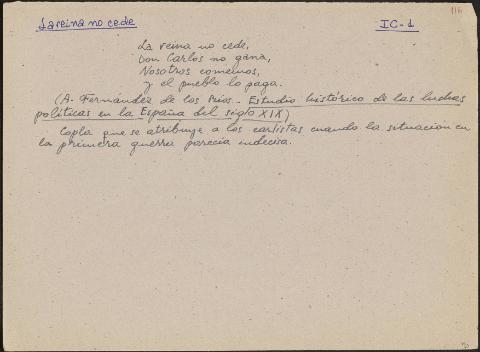 116
La reina no cede
IC-1
La reina no cede,
Don Carlos no gana,
Nosotros comemos,
y el pueblo lo paga.
(A. Fernández de los Ríos - Estudio histórico de las luchas
políticas en la España del siglo XIX)
Copla que se atribuye a los carlistas cuando la situación en
la primera guerra parecía indecisa.